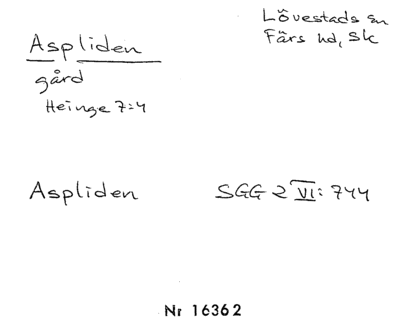 Aspliden
Lövestads sn
Färs hd, Sk
gård
Heinge 7:4
Aspliden SGG 2 VI: 744
Nr 16362